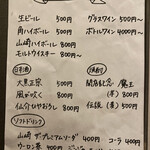 生ビール 500円
角ハイボール 500円
山崎ハイボール 800円
モルトウイスキー 800円〜
グラスワイン 500円〜
ボトルワイン 4000円〜
日本酒
大黒正宗 500円
風が吹く 800円
仙介ひやおろし 800円
焼酎
開店記念 魔王
(芋) 800円
伝説 (芋) 500円
ソフトドリンク
山崎 ザ・プレミアムソーダ 400円
コーラ
ウーロン茶